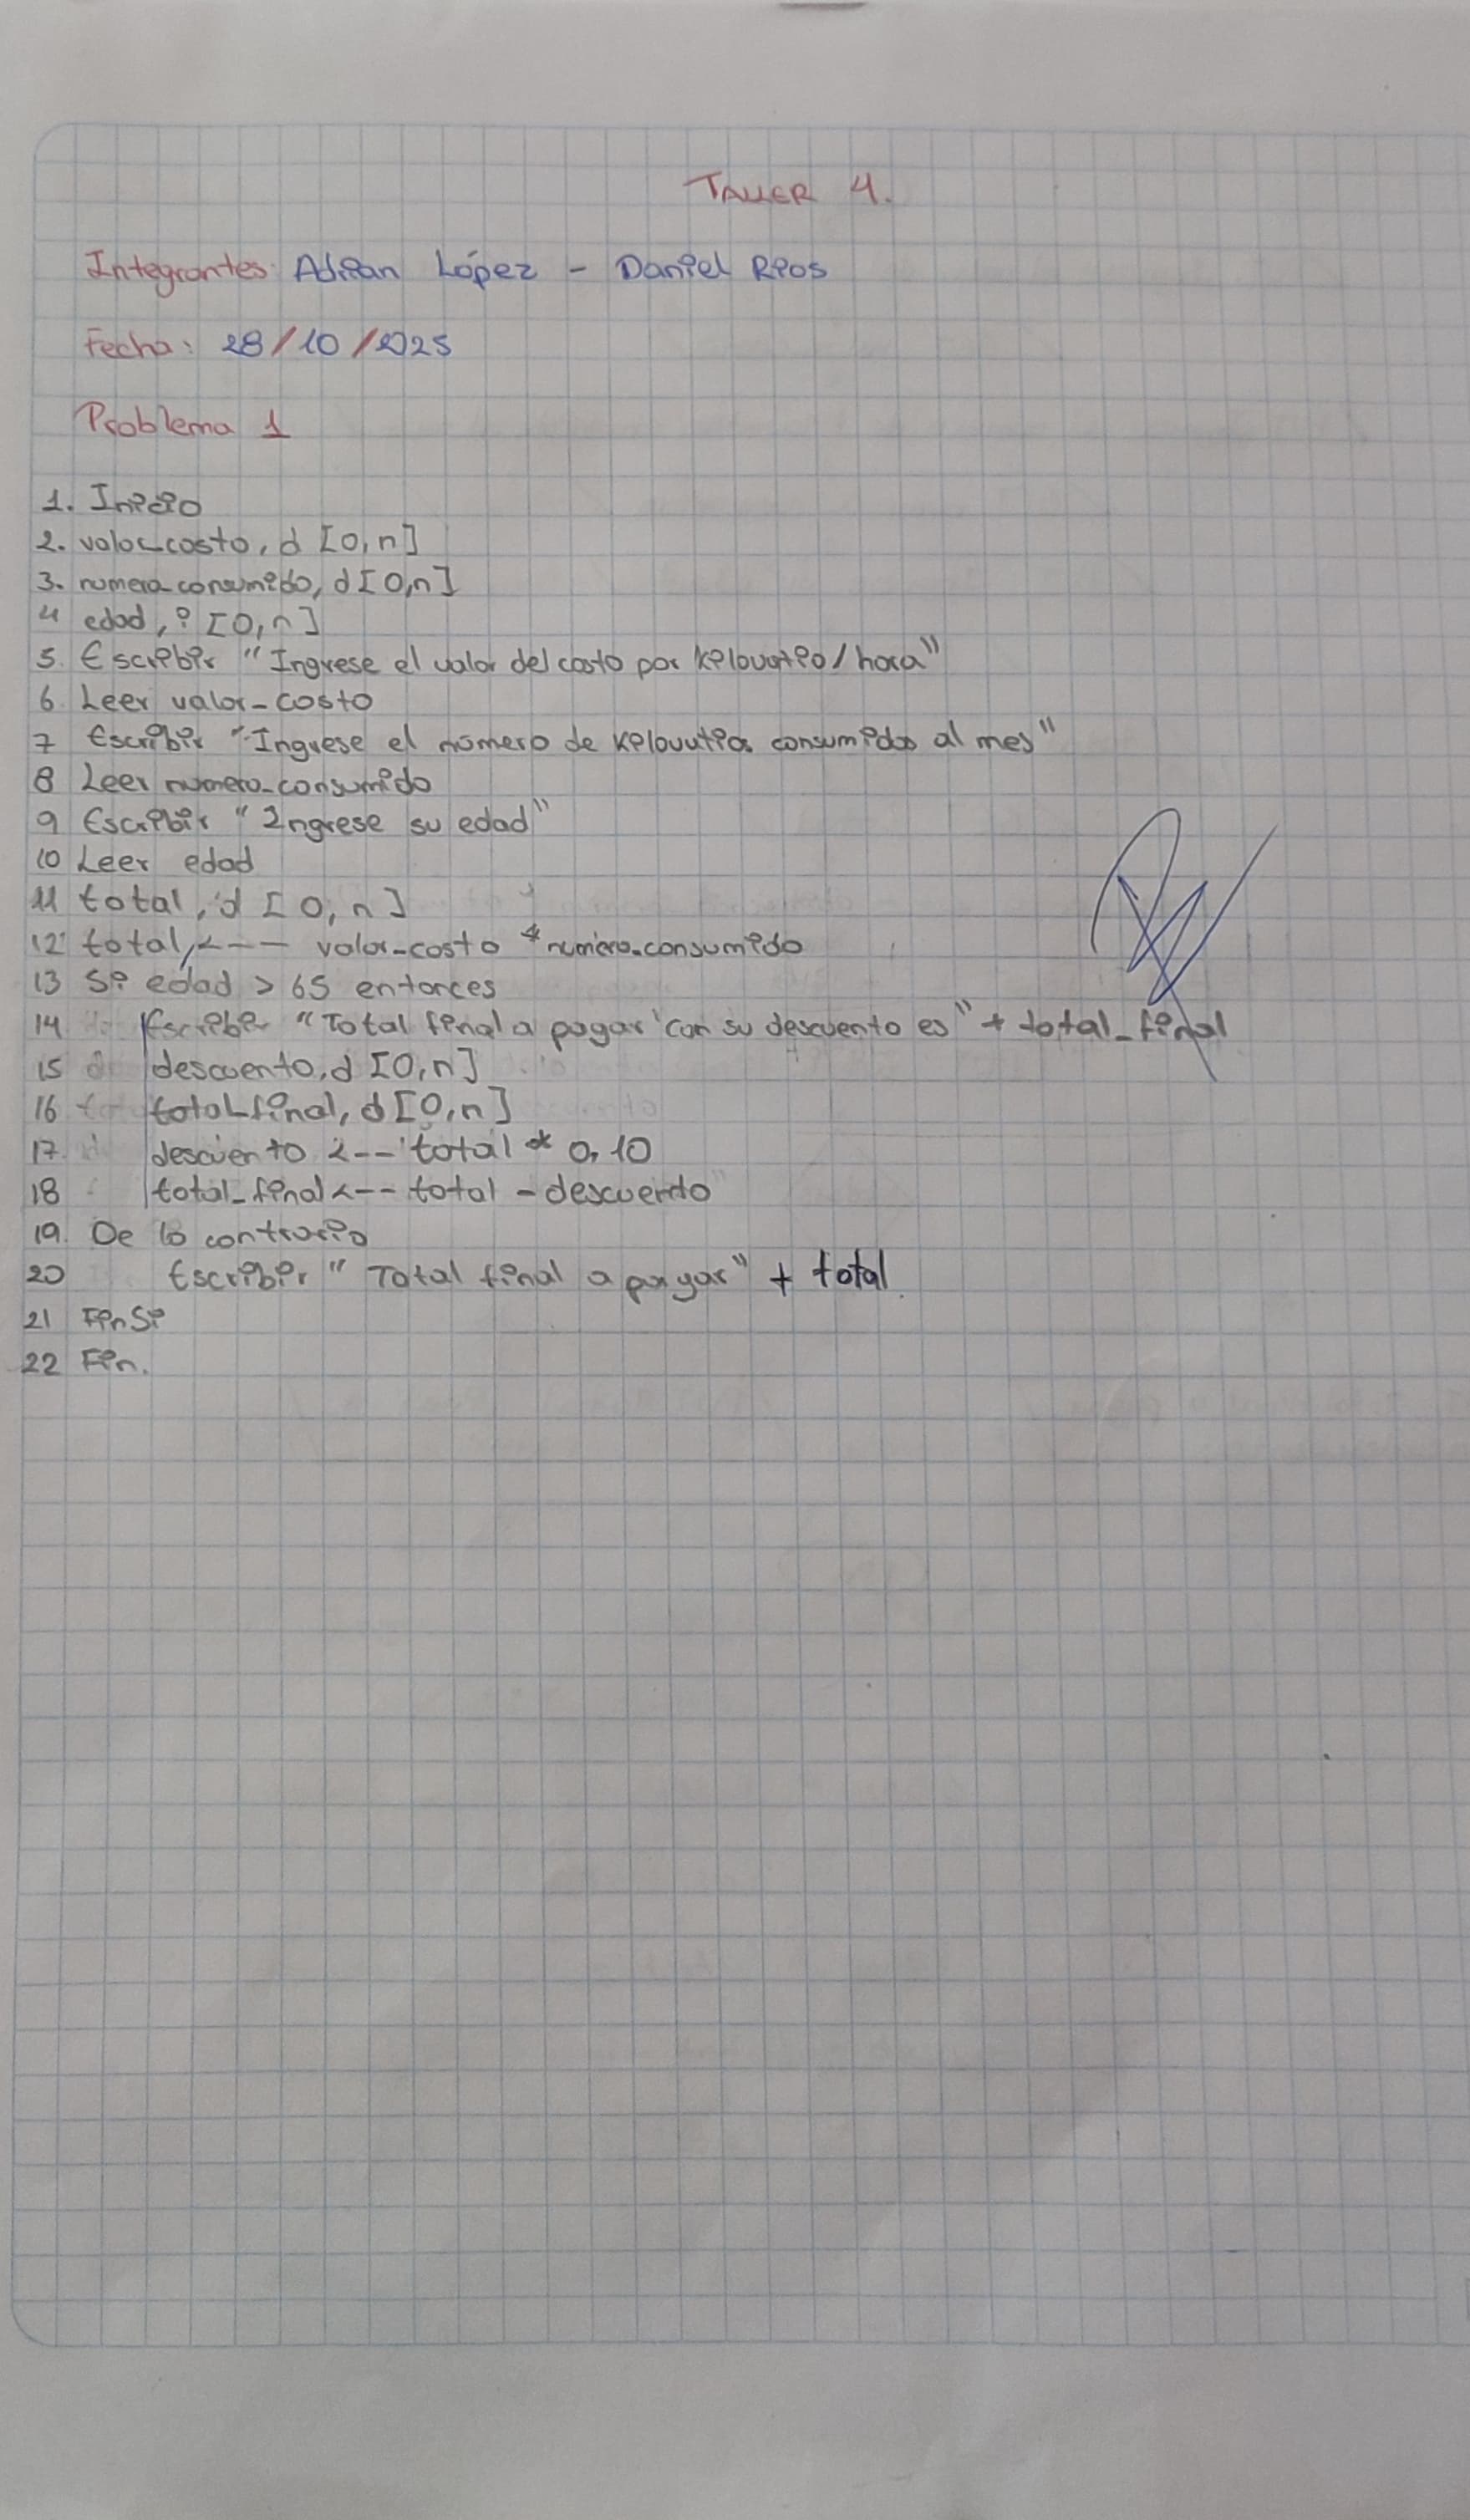 TALLER 4.
Integrantes: Adrian López - Daniel Rios
Fecha: 28/10/2025
Problema 1
1. Inicio
2. valor_costo, d [0,n]
3. numero_consumido, d [0,n]
4 edad, i [0,n]
5. Escribir "Ingrese el valor del costo por kilovatio/hora"
6. Leer valor_costo
7 Escribir "Ingrese el número de kilovatios consumidos al mes"
8 Leer numero_consumido
9 Escribir "Ingrese su edad"
10 Leer edad
11 total, d [0,n]
12 total <-- valor_costo * numero_consumido
13 Si edad > 65 entonces
14 Escribir "Total final a pagar con su descuento es" + total_final
15 descuento, d [0,n]
16 total_final, d [0,n]
17. descuento <-- total * 0,10
18 total_final <-- total - descuento
19. De lo contrario
20 Escribir "Total final a pagar" + total
21 FinSi
22 Fin.